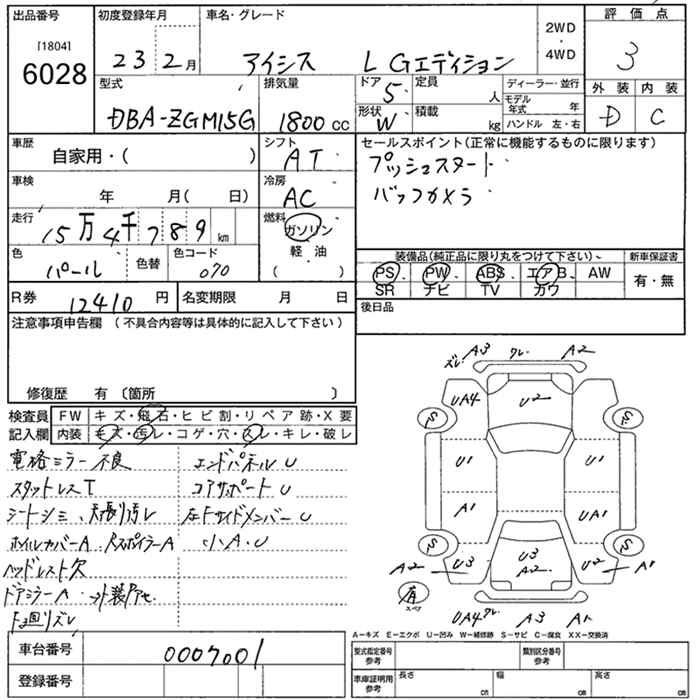 出品番号
[1804]
6028
初度登録年月
23 2月
車名・グレード
アイシス LGエディション
2WD
・
4WD
評価点
3
外装 内装
D C
型式
DBA-ZGM15G
排気量
1800 CC
ドア 5
定員 人
形状 W
積載 kg
ディーラー・並行
モデル年式 年
ハンドル 左・右
車歴
自家用・( )
シフト
AT
車検
年 月( 日)
冷房
AC
走行
15万4千789km
燃料
ガソリン
軽・油
( )
色
パール
色替
色コード
070
R券 12410 円
名変期限 月 日
セールスポイント(正常に機能するものに限ります)
プッシュスタート
バックカメラ
装備品(純正品に限り丸をつけて下さい)
PS PW ABS エアB AW
SR ナビ TV カワ
新車保証書
有・無
後日品
注意事項申告欄 (不具合内容等は具体的に記入して下さい)
修復歴 有 〔箇所 〕
検査員
記入欄
FW キズ・飛石・ヒビ割・リペア跡・X要
内装 キズ・汚レ・コゲ・穴・スレ・キレ・破レ
電格ミラー不良 エンドパネルU
スタットレスT コアサポートU
シートシミ、天張り汚レ 左Fサイドメンバー U
ホイルカバーA RスポイラーA 小A.U
ヘッドレスト欠
ドアミラーA 外装
下回りズレ
車台番号 0007001
登録番号
ズレ A3 クレ A2
UA4 U2
S S
U1 U1
A1 UA1
S S
A2 U3 U3 A2 U2 A1
有
スペア
UA4 クレ A3 A1
A-キズ E-エクボ U-凹み W-補修跡 S-サビ C-腐食 XX-交換済
型式指定番号
参考
類別区分番号
参考
車庫証明用
参考
長さ cm
幅 cm
高さ cm